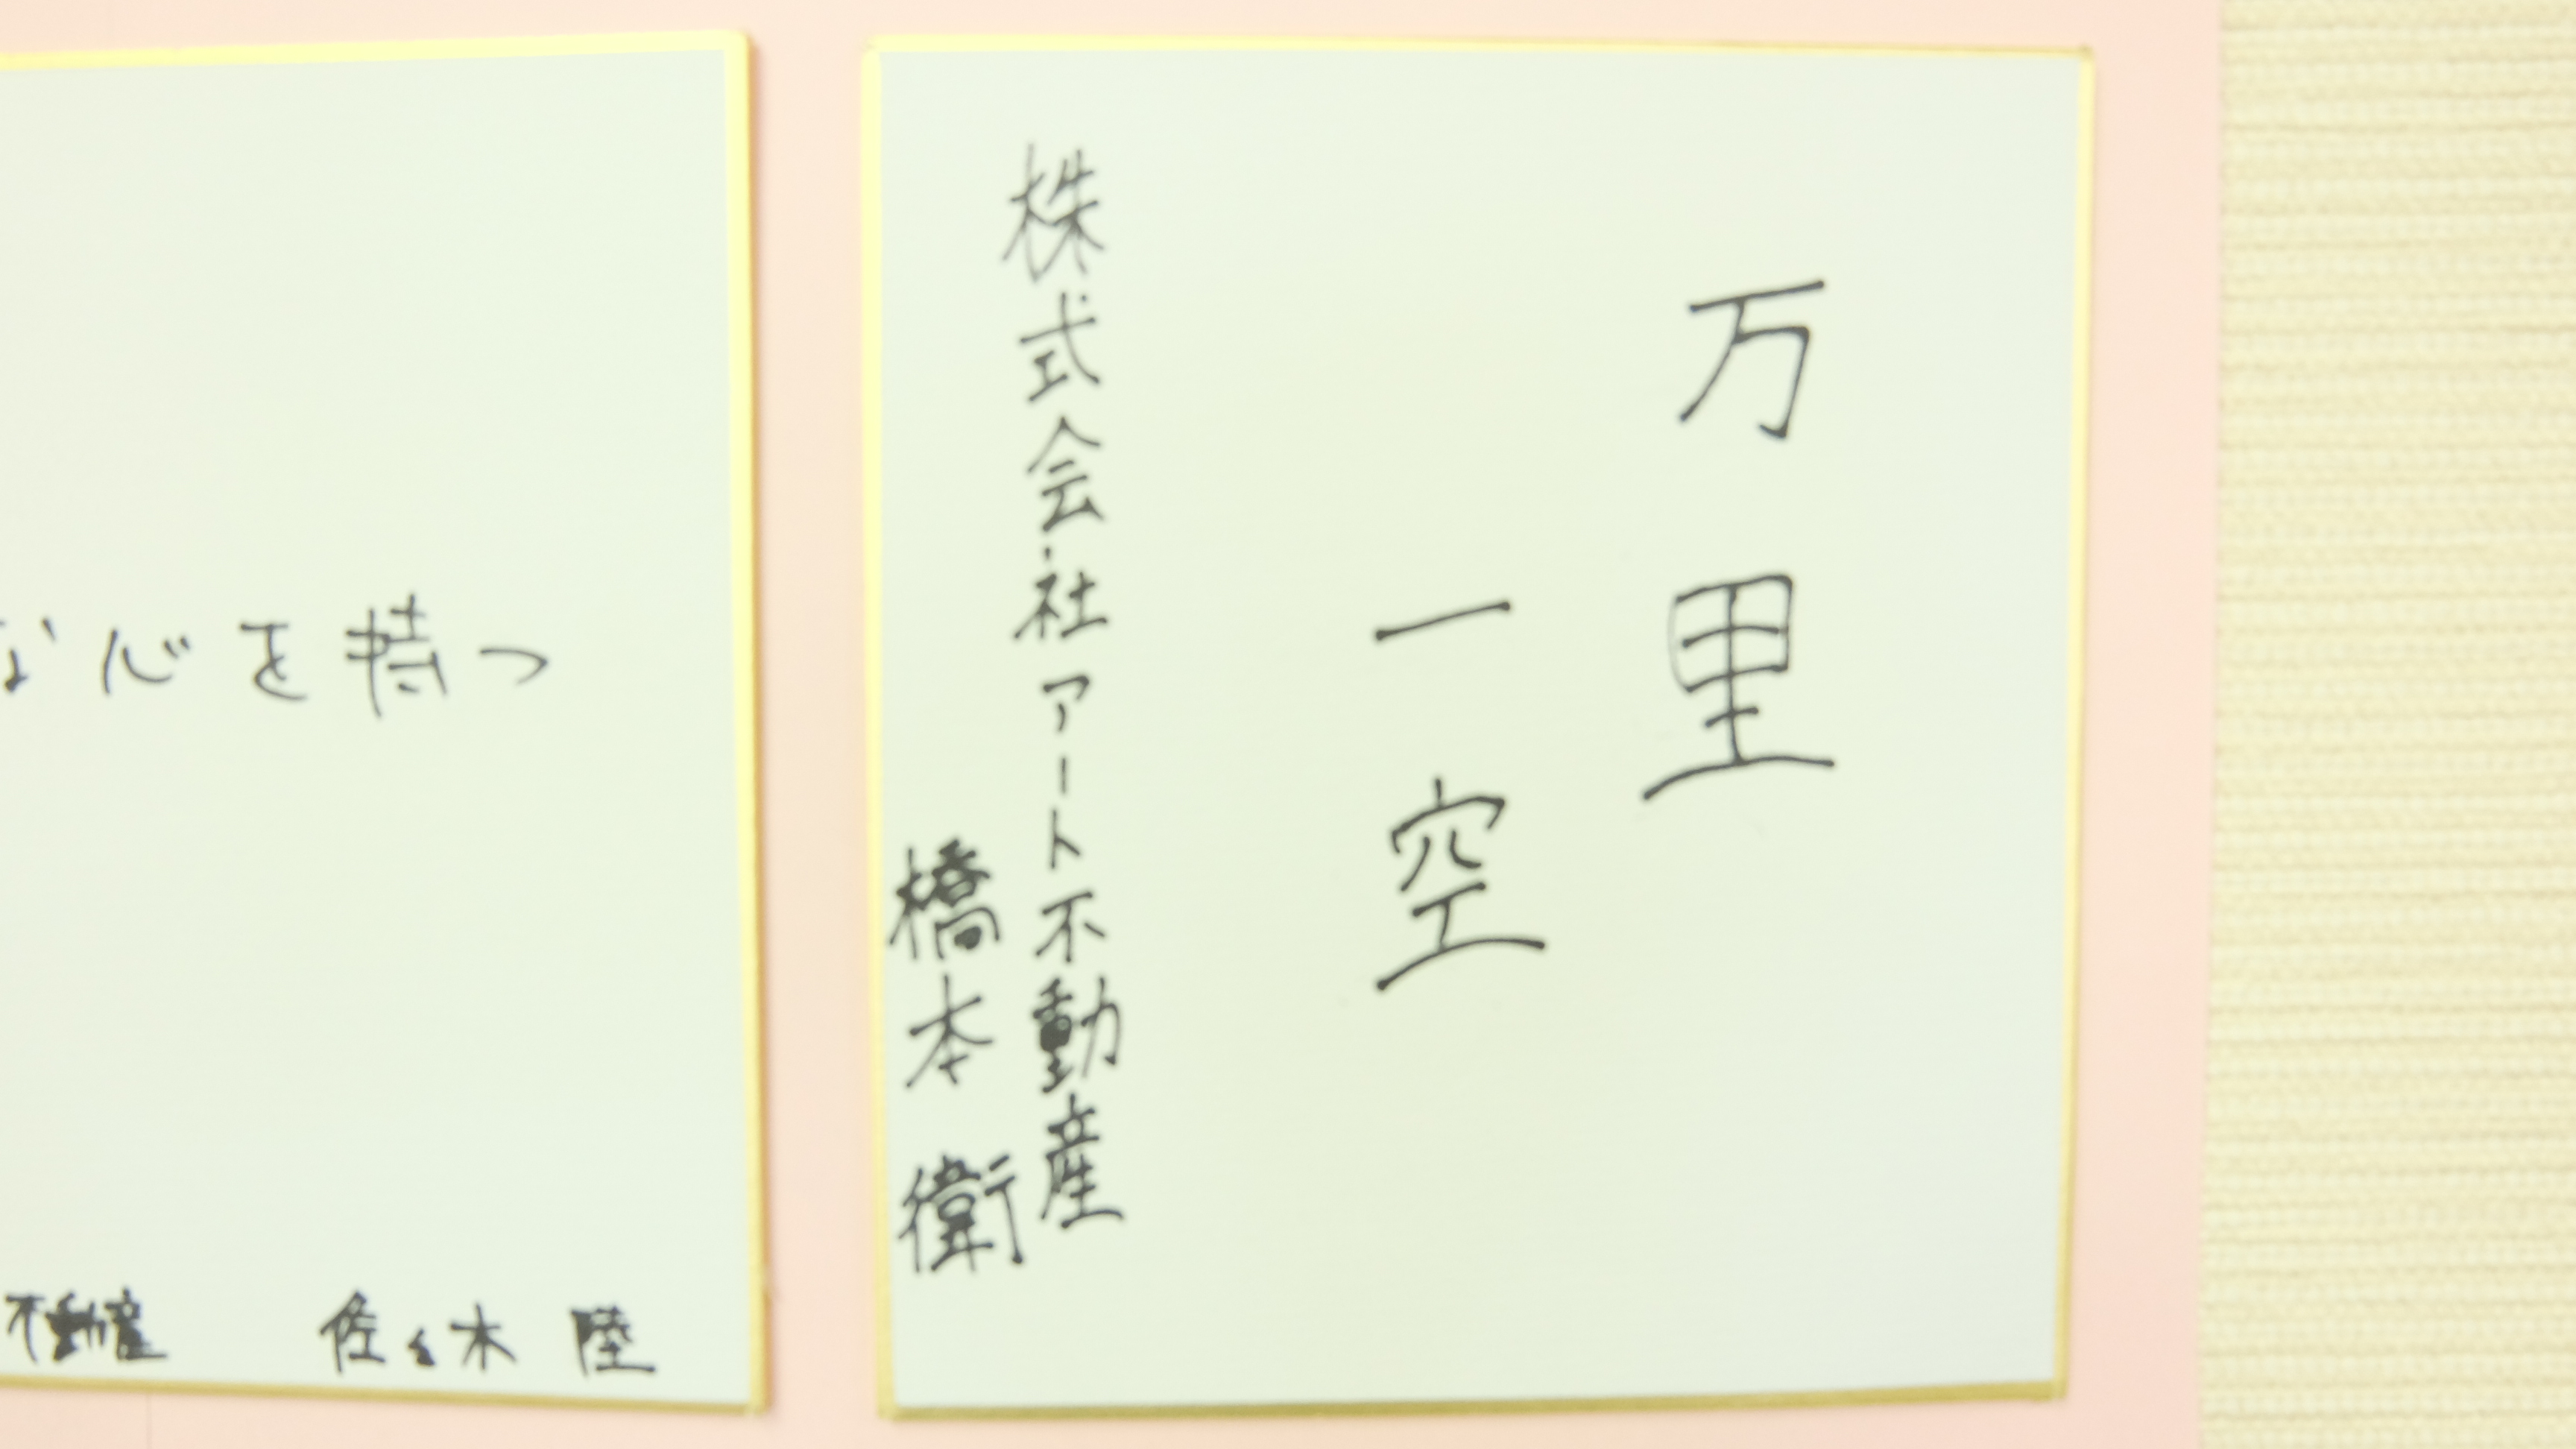 な心を持つ
不動産 佐々木 陸
万里
一空
株式会社アート不動産
橋本 衛